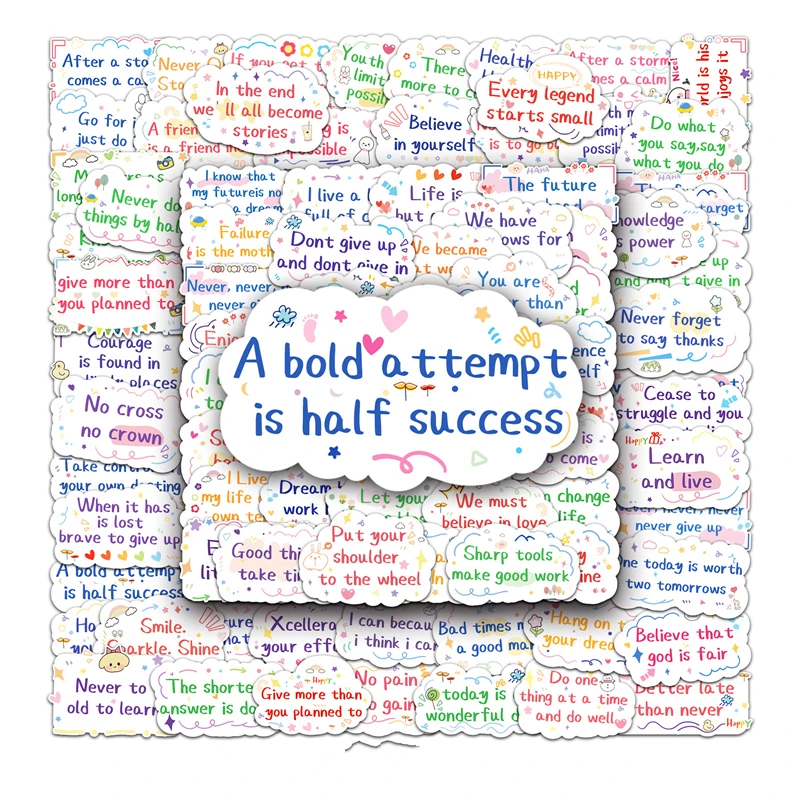 After a sto
comes a ca
Never
If you get
Youth
limit
possib
There
more to
Health
HAPPY
Every legend
starts small
After a storm
comes a calm
Nice!
rld is his
njoys it
In the end
we'll all become
stories
Go for i
just do
A friend
is a friend in
possible
Believe
in yourself
is to go
limit
possi
Do what
you say,say
what you do
I know that
my future is no
a dream
I live a
full of
Life is
but
HAHA
The future
HAHA
target
Never do
things by ha
Failure
is the moth
Dont give up
and dont give in
We have
ows for
We became
at w
nowledge
s power
and don't give in
give more than
you planned to
Never, never,
never
You are
r than
Never forget
to say thanks
Courage
is found in
places
Enjo
A bold attempt
is half success
ence
elf
No cross
no crown
Cease to
struggle and you
HAPPY
Learn
and live
to come
Take contro
your own destiny
When it has
is lost
brave to give up
I Live
my life
own te
Dream
work
Let you
We must
believe in love
change
life
never, never
never give up
Good thi
take ti
Put your
shoulder
to the wheel
Sharp tools
make good work
ine
One today is worth
two tomorrows
A bold attempt
is half success
Smile.
arkle. Shine
Xcellera
your eff
I can becau
i think i ca
Bad times
a good ma
Hang on t
your drea
Believe that
god is fair
Never to
old to learn
The shorte
answer is do
Happy
Give more than
you planned to
No pain
o gain
today is
wonderful d
Do one
thing at a time
and do well
Better late
than never
Happy